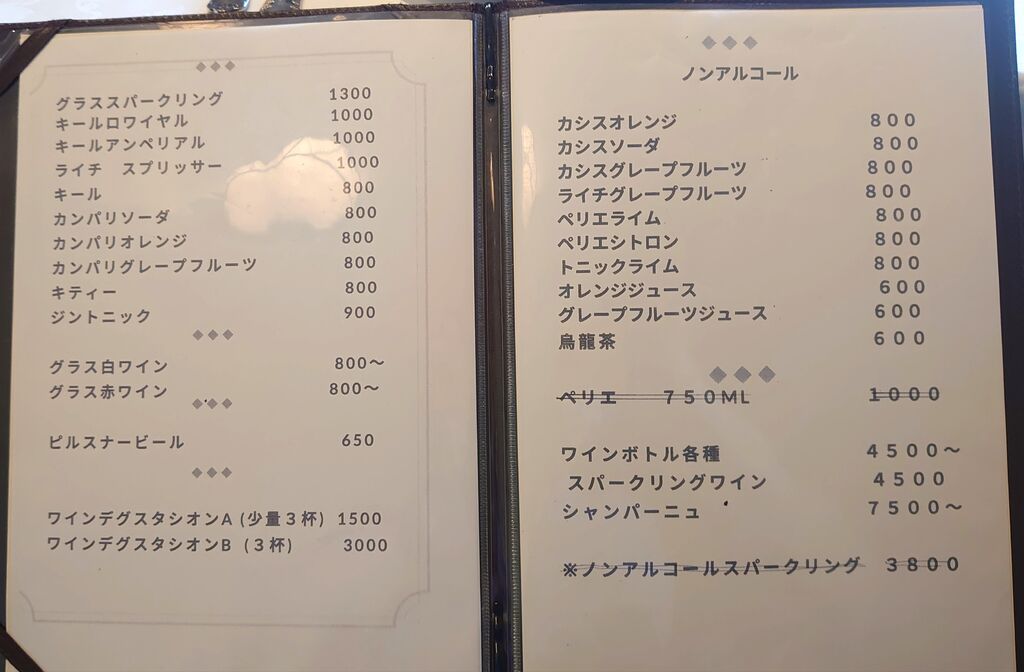 グラススパークリング 1300
キールロワイヤル 1000
キールアンペリアル 1000
ライチ　スプリッサー 1000
キール 800
カンパリソーダ 800
カンパリオレンジ 800
カンパリグレープフルーツ 800
キティー 800
ジントニック 900
グラス白ワイン 800〜
グラス赤ワイン 800〜
ピルスナービール 650
ワインデグスタシオンA (少量３杯) 1500
ワインデグスタシオンB (３杯) 3000
ノンアルコール
カシスオレンジ ８００
カシスソーダ ８００
カシスグレープフルーツ ８００
ライチグレープフルーツ ８００
ペリエライム ８００
ペリエシトロン ８００
トニックライム ８００
オレンジジュース ６００
グレープフルーツジュース ６００
烏龍茶 ６００
ペリエ　７５０ML １０００
ワインボトル各種 ４５００〜
スパークリングワイン ４５００
シャンパーニュ ７５００〜
※ノンアルコールスパークリング ３８００